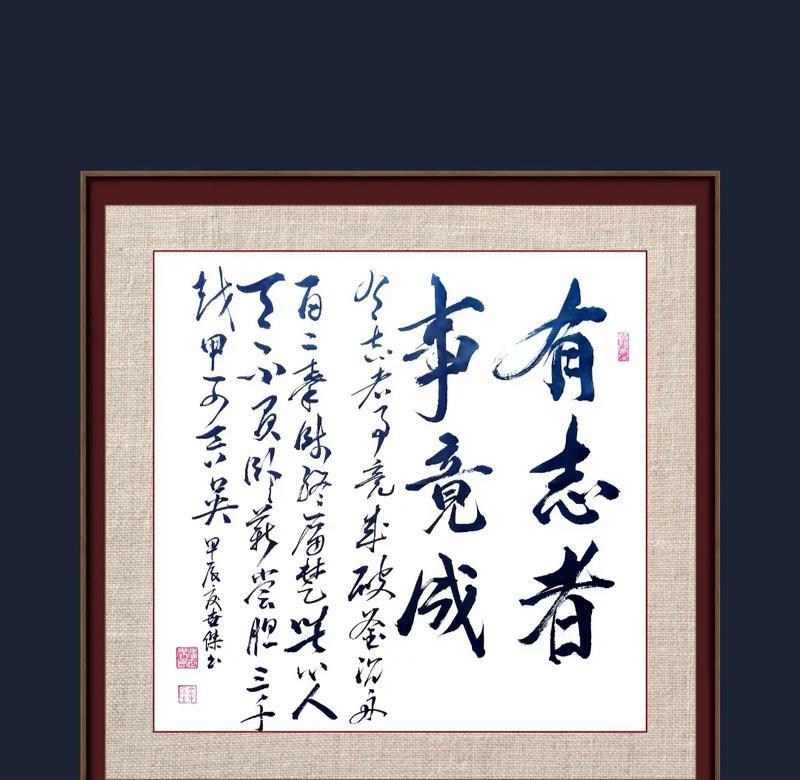 有志者
事竟成
有志者事竟成破釜沉舟
百二秦關終屬楚苦心人
天不負卧薪尝胆三千
越甲可吞吴
甲辰夏世傑书